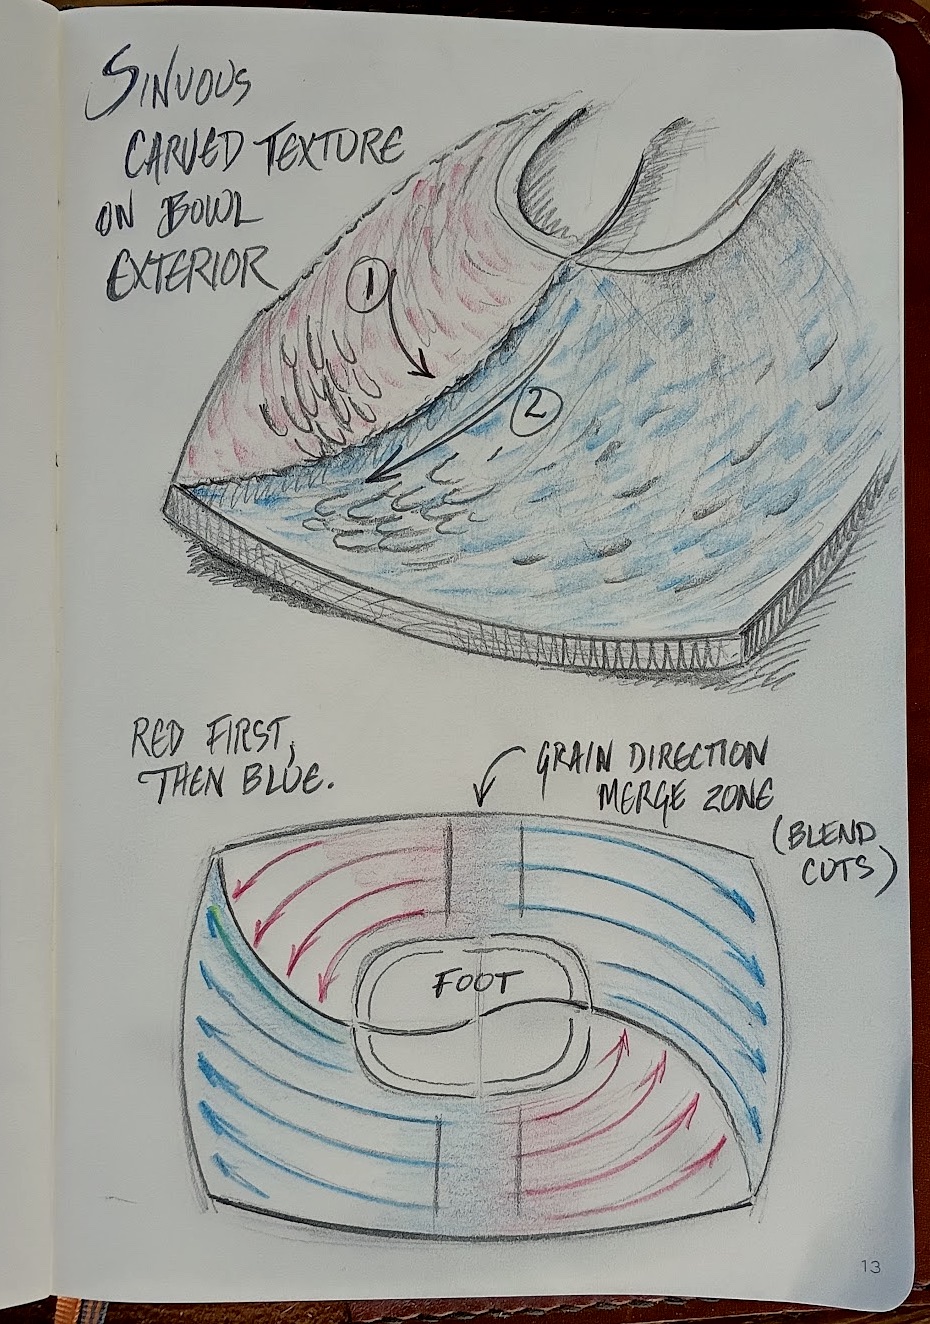 SINUOUS
CARVED TEXTURE
ON BOWL
EXTERIOR
1
2
RED FIRST,
THEN BLUE.
GRAIN DIRECTION
MERGE ZONE
(BLEND
CUTS)
FOOT
13